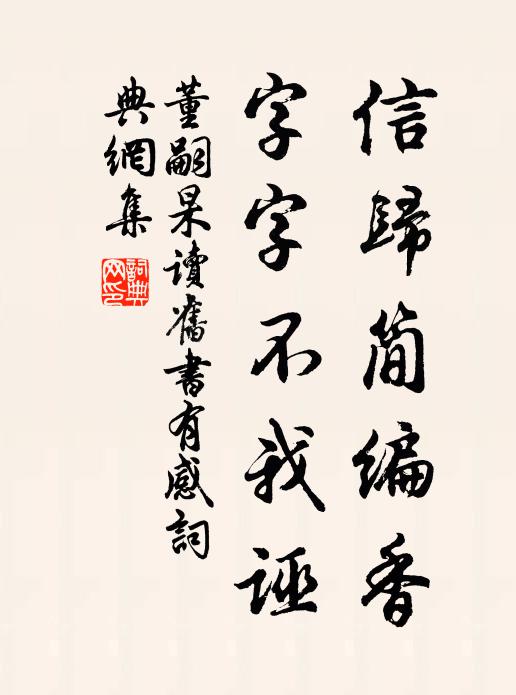 信歸簡編香
字字不我誣
董嗣杲讀舊書有感詞
典網集
詞典網印